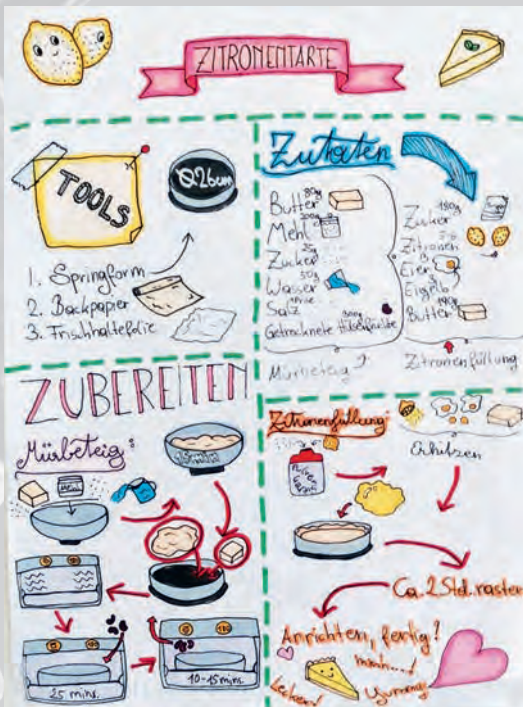 ZITRONENTARTE
TOOLS
Ø26cm
1. Springform
2. Backpaper
3. Frischhaltefolie
Zutaten
80g
Butter
200g
Mehl
25g
Zucker
50g
Wasser
Salz
300g
Getrocknete Hülsenfrüchte
Mürbeteig
180g
Zucker
Zitronen
Eier
Eigelb
190g
Butter
Zitronenfüllung
ZUBEREITEN
Mürbeteig:
MEHL
25 mins.
10-15 mins.
Zitronenfüllung:
Erhitzen
Ca. 2 Std. rasten
Anrichten, fertig!
mmh...!
Lecker!
Yummy